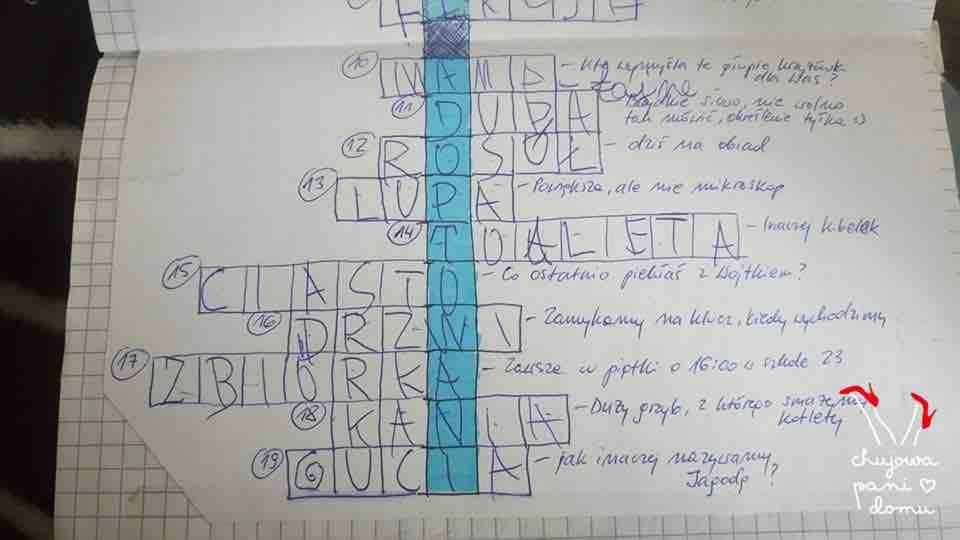 10 IWAMD - Kto wymyśla te głupie krzyżówki
dla Was?
11 DUPA - Brzydkie słowo, nie wolno
tak mówić, określenie tyłka :)
12 ROSÓŁ - dziś na obiad
13 LUPA - Powiększa, ale nie mikroskop
14 TOALETA - Inaczej kibelek
15 CIASTO - Co ostatnio piekłaś z Wojtkiem?
16 DRZWI - Zamykamy na klucz, kiedy wychodzimy
17 ZBIÓRKA - Zawsze w piątki o 16:00 w szkole 23
18 KANIA - Duży grzyb, z którego smażymy
kotlety
19 GUCIA - jak inaczej nazywamy
Jagodę?
chujowa
pani
domu